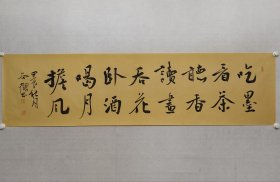 吃墨
看茶
聽香
讀畫
吞花
卧酒
喝月
擔風